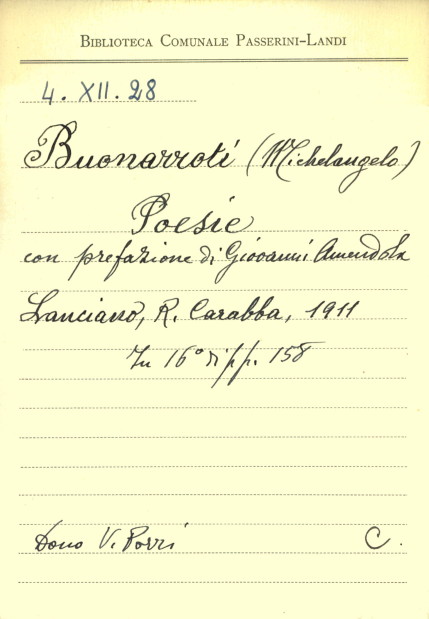 BIBLIOTECA COMUNALE PASSERINI-LANDI
4. XII. 28
Buonarroti (Michelangelo)
Poesie
con prefazione di Giovanni Amendola
Lanciano, R. Carabba, 1911
In 16° di pp. 158
Dono V. Porri
C.